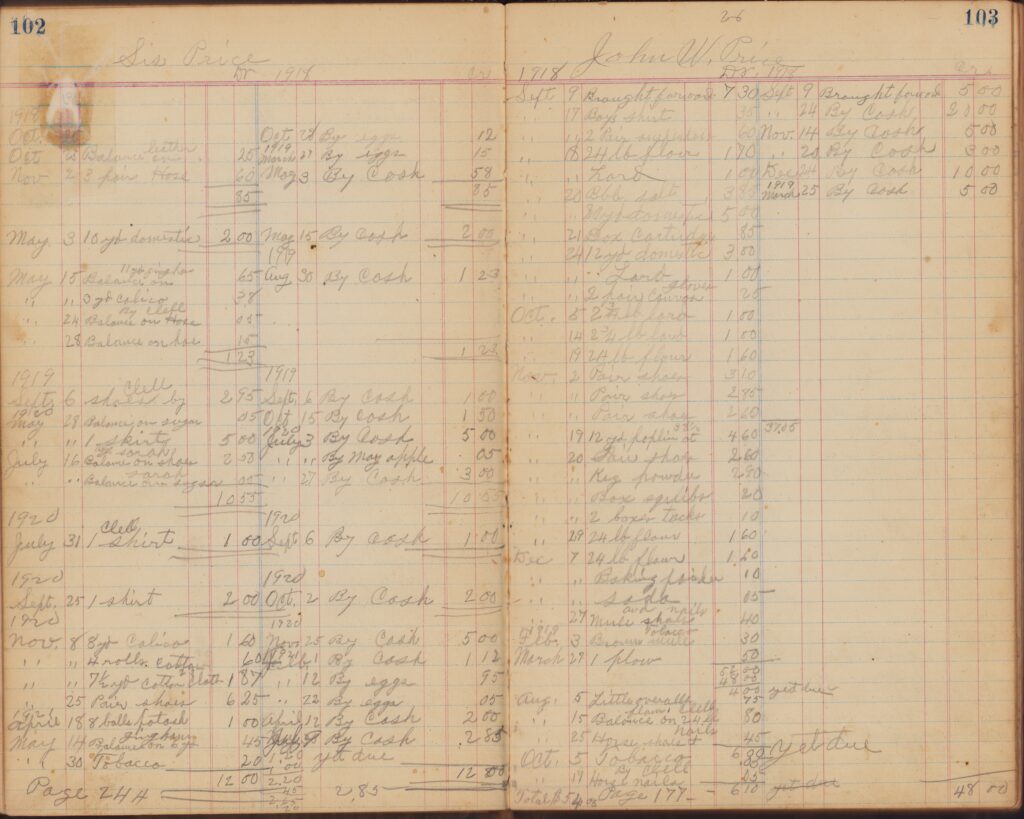 102
Sis Price
Dr 1918 Cr.
1918
Oct.
Oct. 28 By eggs 12
Oct Balance on 25
1919
March 27 By eggs 15
Nov 2 3 pair Hose 60
May 3 By Cash 58
85 85
May 3 10 yd domestic 2 00 May 15 By Cash 2 00
1919
May 15 Balance on 65 Aug 30 By Cash 1 23
" " 3 yd Calico 38
By Clell
" 24 Balance on Hose 05
" 28 Balance on hose 15
1 23 1 23
1919 1919
Clell
Sept. 6 shoes by 2 95 Sept. 6 By Cash 1 00
1920
May 28 Balance on sugar 05 Oct 15 By Cash 1 50
1920
" " 1 skirt 5 00 July 3 By Cash 5 00
by Sarah
July 16 Balance on shoes 2 50 " " By May apple 05
Sarah
" " Balance on sugar 05 " 27 By Cash 3 00
10 55 10 55
1920 1920
Clell
July 31 1 shirt 1 00 Sept 6 By Cash 1 00
1920 1920
Sept. 25 1 shirt 2 00 Oct. 2 By Cash 2 00
1920 1920
Nov. 8 8 yd Calico 1 60 Nov. 25 By Cash 5 00
1921
" " 4 rolls cotton 60 Feb. 1 By Cash 1 12
" " 7½ yd Cotton Cloth 1 87 " 12 By eggs 95
" 25 Pair shoes 6 25 " 22 By eggs 05
1921
April 18 8 balls potash 1 00 April 12 By Cash 2 00
Gingham
May 14 Balance on 6 yd 45 By Cash 2 85
" 30 Tobacco 20 yet due
12 00 12 00
Page 244 2.20 2 85
45
2.65
20
26
103
John W. Price
1918 Dr. 1918 Cr.
Sept. 9 Brought forward 7 30 Sept 9 Brought forward 5 00
" 17 Boys shirt 35 " 24 By Cash 20 00
" " 2 Pair suspenders 60 Nov. 14 By Cash 5 00
" 18 24 lb flour 1 70 " 20 By Cash 3 00
" " Lard 1 00 Dec 24 By Cash 10 00
1919
" 20 Bbl salt March 25 By Cash 5 00
" " domestic 5 00
" 21 Box Cartridges 85
" 24 12 yd domestic 3 00
" " Lard 1 00
gloves
" " 2 pair Canvas 25
Oct. 5 lard 1 00
" 14 1 00
" 19 24 lb flour 1 60
Nov. 2 Pair shoes 3 10
" " Pair shoes 2 85
" " Pair shoes 2 60
" 19 12 yd poplin at 38⅓ 4 60 37.05
" 20 Pair shoes 2 60
" " Keg powder 2 90
" " Box squibs 20
" " 2 boxes tacks 10
" 29 24 lb flour 1 60
Dec 7 24 lb flour 1 60
" " Baking powder 10
" " Soda 05
and nails
" 27 Mule shoes 40
1919 Tobacco
Feb. 3 Brown Mule 30
March 29 1 plow 50
52 00
48 00
4 00 yet due
Aug. 5 Little overalls 75
Clell
" 15 Balance on 24 lb 80
nails
" 25 Horse shoes & 45
6 00 yet due
Oct. 5 Tobacco 05
By Clell
" 19 Horse nails 25
Total $ 54 05 Page 177 - 6 10 yet due 48 00